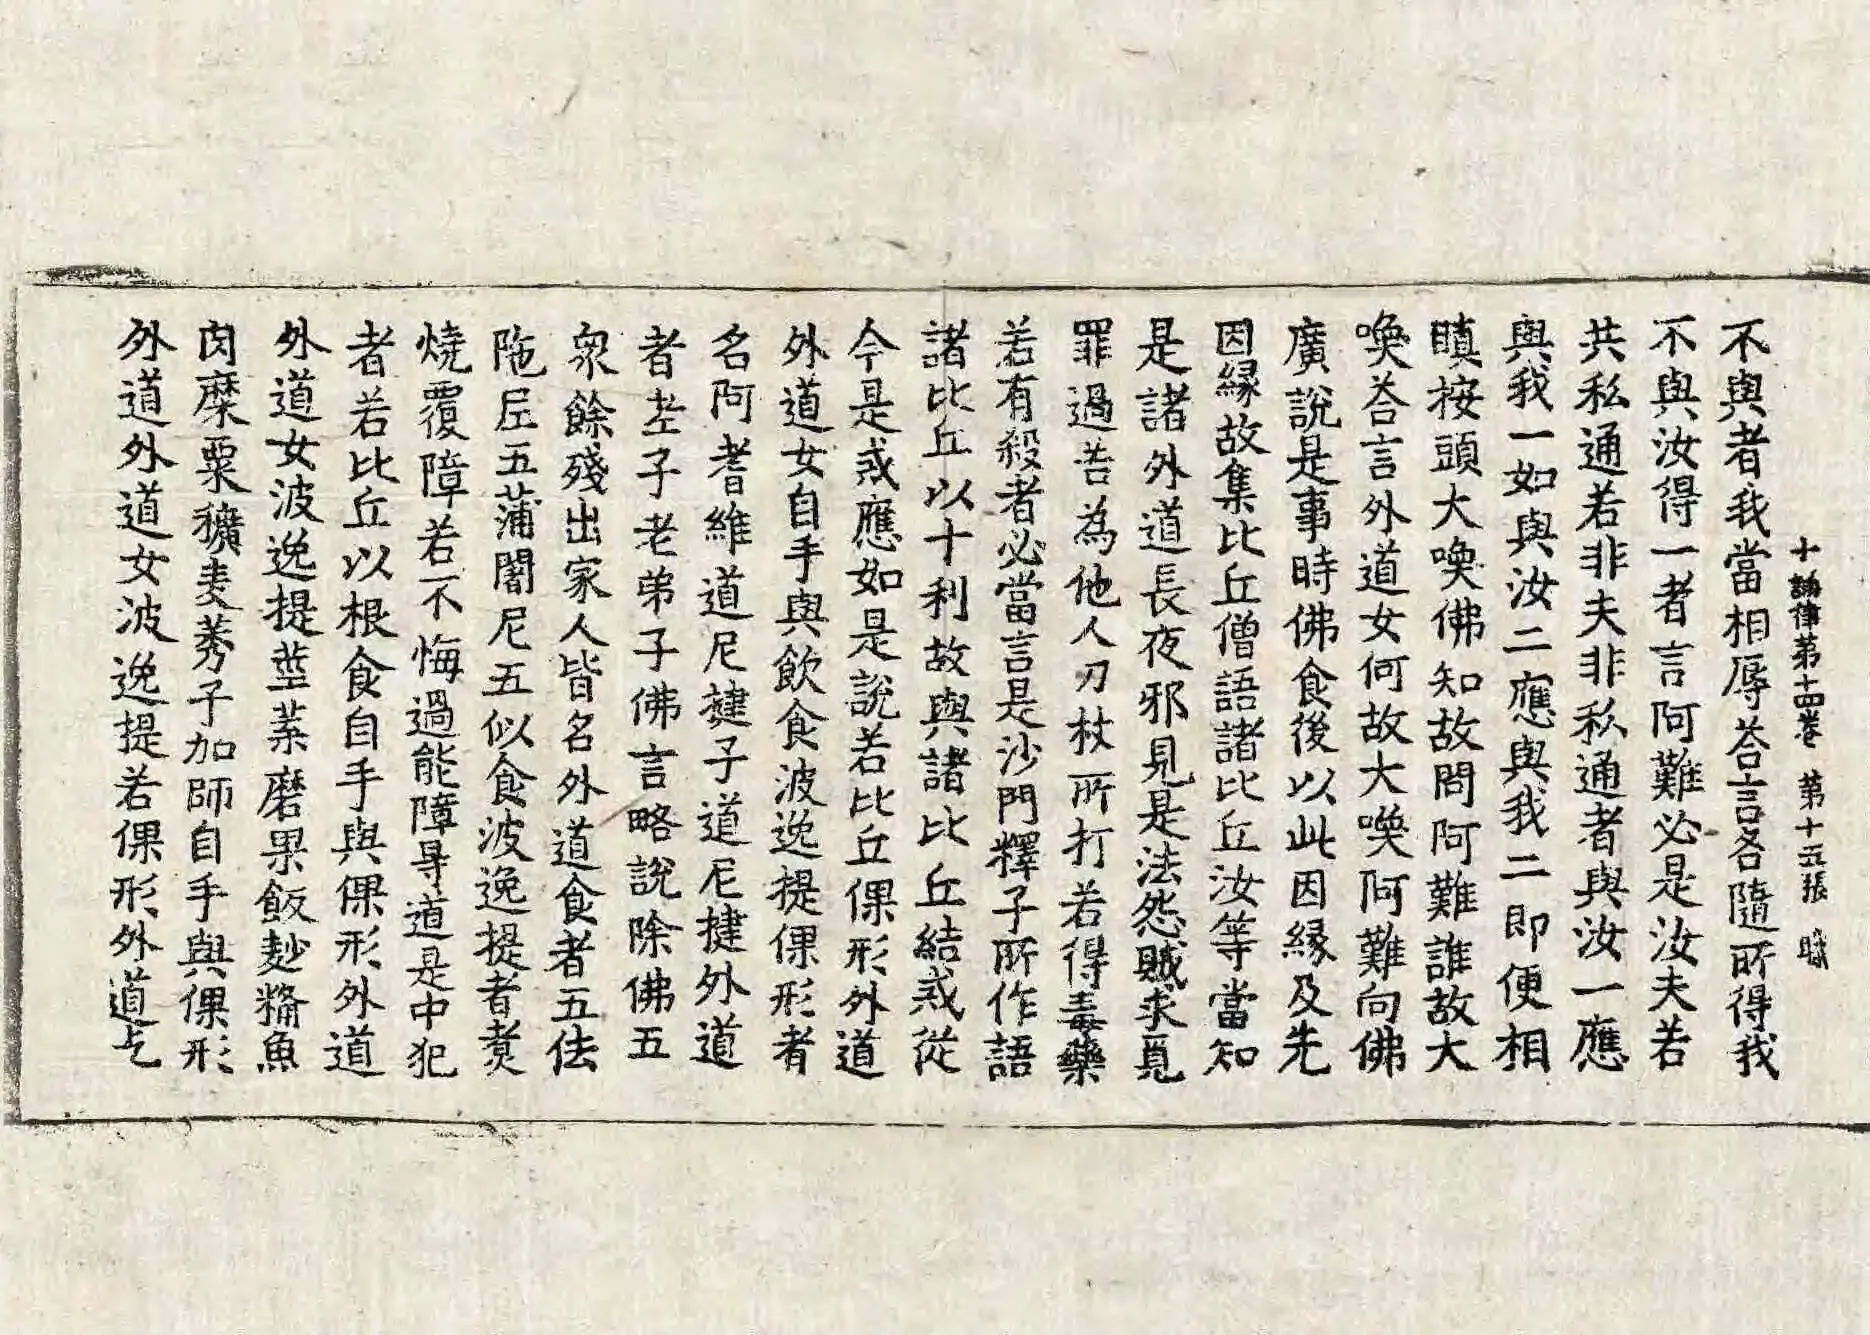 十誦律第十四卷 第十五張 職
不與者我當相辱荅言各隨所得我
不與汝得一者言阿難必是汝夫若
共私通若非夫非私通者與汝一應
與我一如與汝二應與我二即便相
瞋按頭大喚佛知故問阿難誰故大
喚荅言外道女何故大喚阿難向佛
廣說是事時佛食後以此因緣及先
因緣故集比丘僧語諸比丘汝等當知
是諸外道長夜邪見是法怨賊求覓
罪過若為他人刀杖所打若得毒藥
若有殺者必當言是沙門釋子所作語
諸比丘以十利故與諸比丘結戒從
今是戒應如是說若比丘倮形外道
外道女自手與飲食波逸提倮形者
名阿耆維道尼揵子道尼揵外道
者老子老弟子佛言略說除佛五
衆餘殘出家人皆名外道食者五佉
陁尼五蒲闍尼五似食波逸提者煑
燒覆障若不悔過能障㝵道是中犯
者若比丘以根食自手與倮形外道
外道女波逸提莖葉磨果飯麨糒魚
肉糜粟穬麦莠子加師自手與倮形
外道外道女波逸提若倮形外道乞